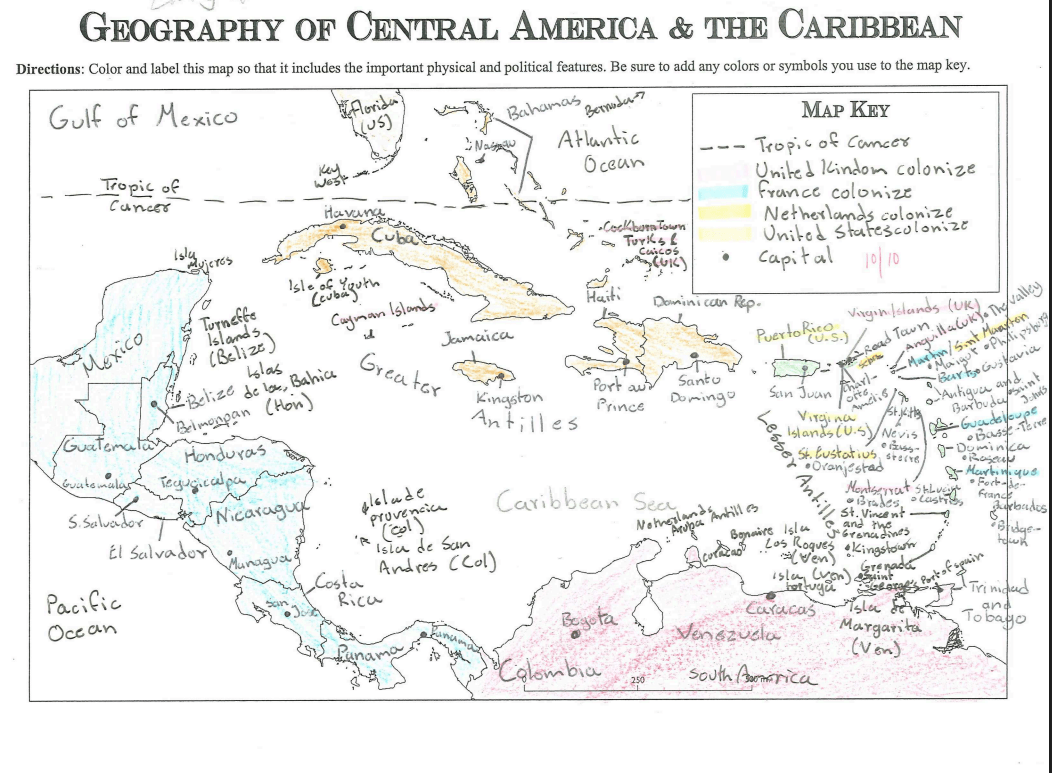 GEOGRAPHY OF CENTRAL AMERICA & THE CARIBBEAN
Directions: Color and label this map so that it includes the important physical and political features. Be sure to add any colors or symbols you use to the map key.
Gulf of Mexico
Florida
(US)
Bahamas
Bermuda
Nassau
Atlantic
Ocean
Key
West
Tropic of
Cancer
MAP KEY
Tropic of Cancer
United Kindom colonize
France colonize
Netherlands colonize
United States colonize
Capital
10/10
Havana
Cuba
Cockburn Town
Turks &
Caicos
(UK)
Isla
Mujeres
Isle of Youth
(Cuba)
Cayman Islands
Haiti
Dominican Rep.
Mexico
Turneffe
Islands
(Belize)
Islas
de la Bahia
(Hon)
Belize
Belmonpan
Jamaica
Kingston
Greater
Antilles
Port au
Prince
Santo
Domingo
Puerto Rico
(U.S.)
San Juan
Virgin Islands (UK)
Road Town
Anguilla (UK)
The Valley
Sint Maarten
Philipsburg
Marigot
Gustavia
Antigua and
Barbuda
Saint
Johns
Virgina
Islands (U.S)
St. Kitts
Nevis
Guadeloupe
Basse-Terre
St. Eustatius
Oranjestad
Dominica
Roseau
Martinique
Fort-de-
France
Lesser
Antilles
Montserrat
Brades
St. Lucia
Castries
St. Vincent
and the
Grenadines
Kingstown
Barbados
Bridge-
town
Guatemala
Guatemala
Honduras
Tegucicalpa
S. Salvador
El Salvador
Nicaragua
Managua
Isla de
providencia
(Col)
Isla de San
Andres (Col)
Caribbean Sea
Netherlands Antilles
Aruba
Curacao
Bonaire
Isla
Los Roques
(Ven)
Isla (Ven)
tortuga
Grenada
Saint
Georges
Port of Spain
Trinidad
and
Tobago
Isla de
Margarita
(Ven)
Costa
Rica
San Jose
Pacific
Ocean
Panama
Panama
Bogota
Colombia
Caracas
Venezuela
South America
250